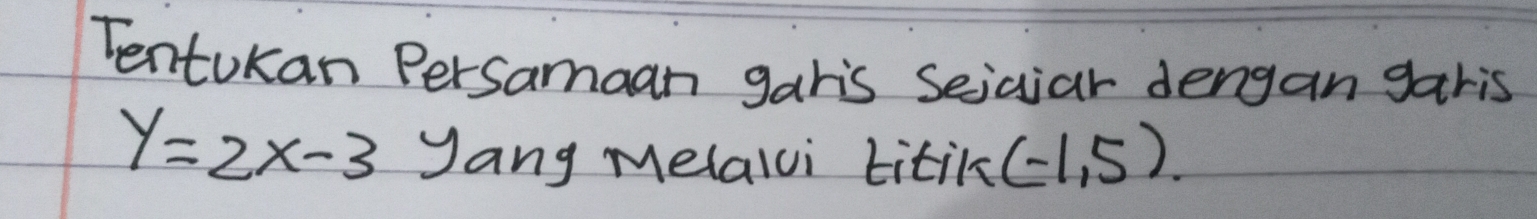 Tentukan Persamaan garis Sejajar dengan garis
Y=2x-3 Yang Melalui titik(-1,5).